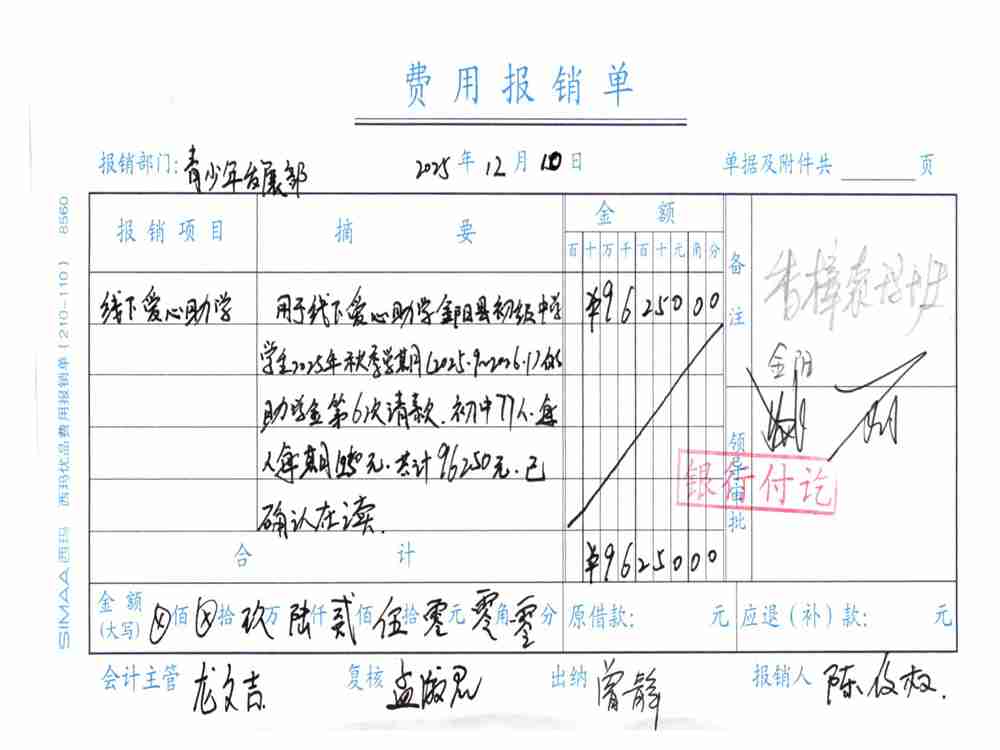 费用报销单
报销部门: 青少年发展部 2025年12月10日 单据及附件共 页
报销项目 摘要 金额 备注
百十万千百十元角分
线下爱心助学 用于线下爱心助学金阳县初级中学 ¥9625000
学生2025年秋季学期(2025.9~2026.1)的
助学金第6次请款.初中77人.每
人每期1250元.共计96250元.已
确认在读.
金阳
领导审批
银行付讫
合计 ¥9625000
金额(大写) ⊗佰⊗拾玖万陆仟贰佰伍拾零元零角零分 原借款: 元 应退(补)款: 元
会计主管 龙文吉 复核 孟 出纳 曾静 报销人 陈
SIMAA西玛 西玛优品费用报销单(210-110) 8560